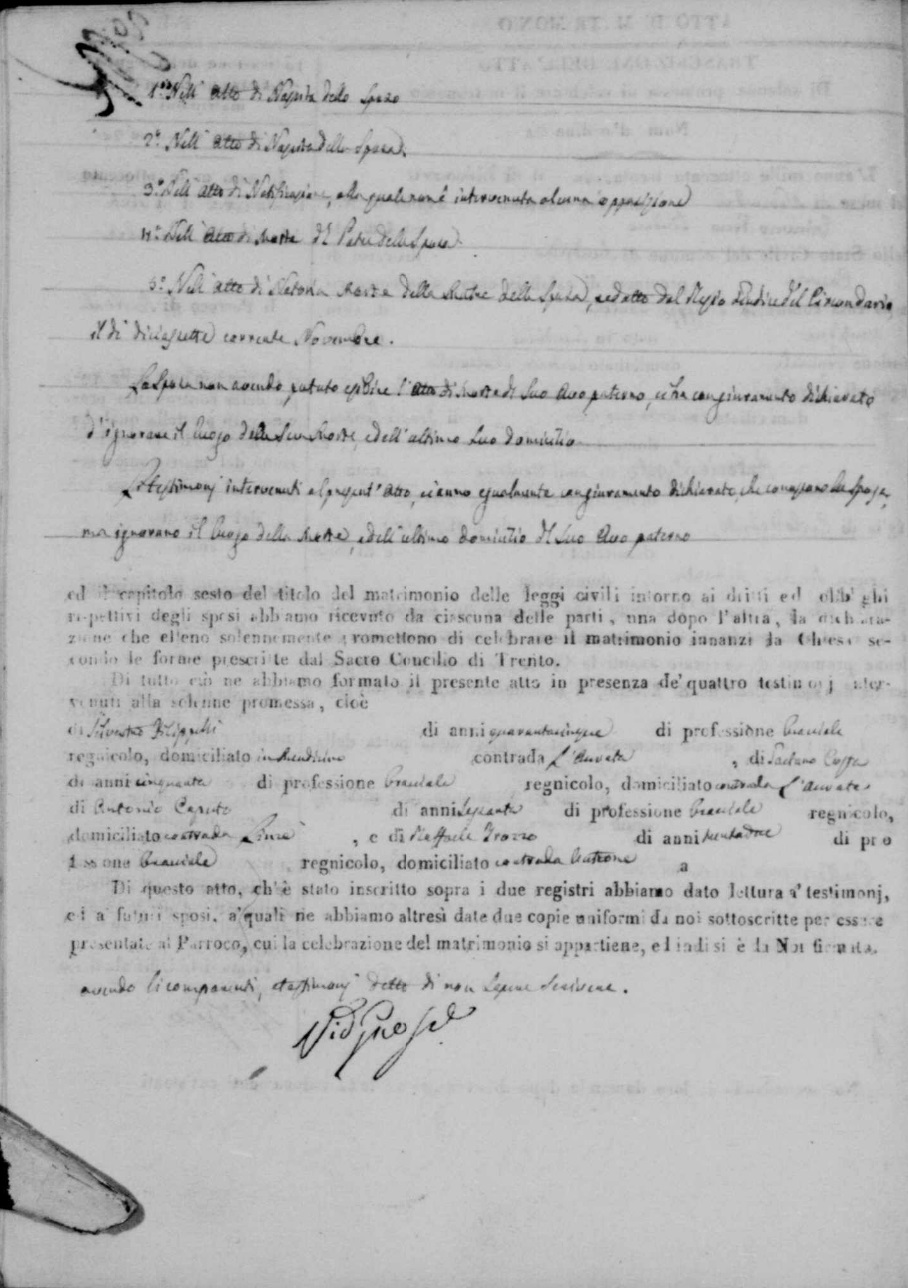 1.° Nell' atto di Nascita dello Sposo
2.° Nell' atto di Nascita della Sposa.
3.° Nell' atto di Notificazione, alla quale non è intervenuta alcuna opposizione
4.° Nell' atto di Morte del Padre della Sposa
5.° Nell' atto di Morte della Madre della Sposa, dal Regio Giudice del Circondario,
il dì diciassette corrente Novembre.
La Sposa non avendo potuto esibire l'atto di Morte di Suo Avo paterno, ci ha con giuramento dichiarato
d'ignorare il luogo della Sua Morte, e dell'ultimo Suo domicilio
I Testimonj intervenuti al present'atto, ci anno egualmente con giuramento dichiarato, che conoscono la Sposa,
ma ignorano il luogo della Morte, e dell'ultimo domicilio del Suo Avo paterno
ed il capitolo sesto del titolo del matrimonio delle leggi civili intorno ai dritti ed obblighi
rispettivi degli sposi abbiamo ricevuto da ciascuna delle parti, una dopo l'altra, la dichiara-
zione che elleno solennemente promettono di celebrare il matrimonio innanzi la Chiesa se-
condo le forme prescritte dal Sacro Concilio di Trento.
Di tutto ciò ne abbiamo formato il presente atto in presenza de' quattro testimonj inter-
venuti alla solenne promessa, cioè
di Silvestro Filippelli di anni quarantacinque di professione bracciale
regnicolo, domiciliato contrada , di Gaetano
di anni cinquanta di professione bracciale regnicolo, domiciliato contrada
di Antonio Caputo di anni sessanta di professione bracciale regnicolo,
domiciliato contrada , e di Raffaele di anni trentadue di pro
fessione bracciale , regnicolo, domiciliato contrada a
Di questo atto, ch'è stato inscritto sopra i due registri abbiamo dato lettura a' testimonj,
ed a' futuri sposi, a' quali ne abbiamo altresì date due copie uniformi da noi sottoscritte per essere
presentate al Parroco, cui la celebrazione del matrimonio si appartiene, e l indi si è da Noi firmata
avendo li componenti, e testimonj detto di non sapere scrivere.